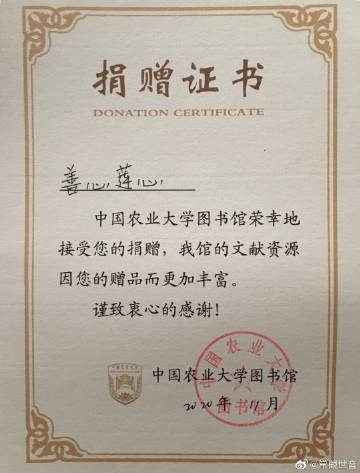 捐赠证书
DONATION CERTIFICATE
善心莲心
中国农业大学图书馆荣幸地
接受您的捐赠，我馆的文献资源
因您的赠品而更加丰富。
谨致衷心的感谢！
中国农业大学图书馆
2020年 11月
中国农业大学
图书馆
@常觀世音